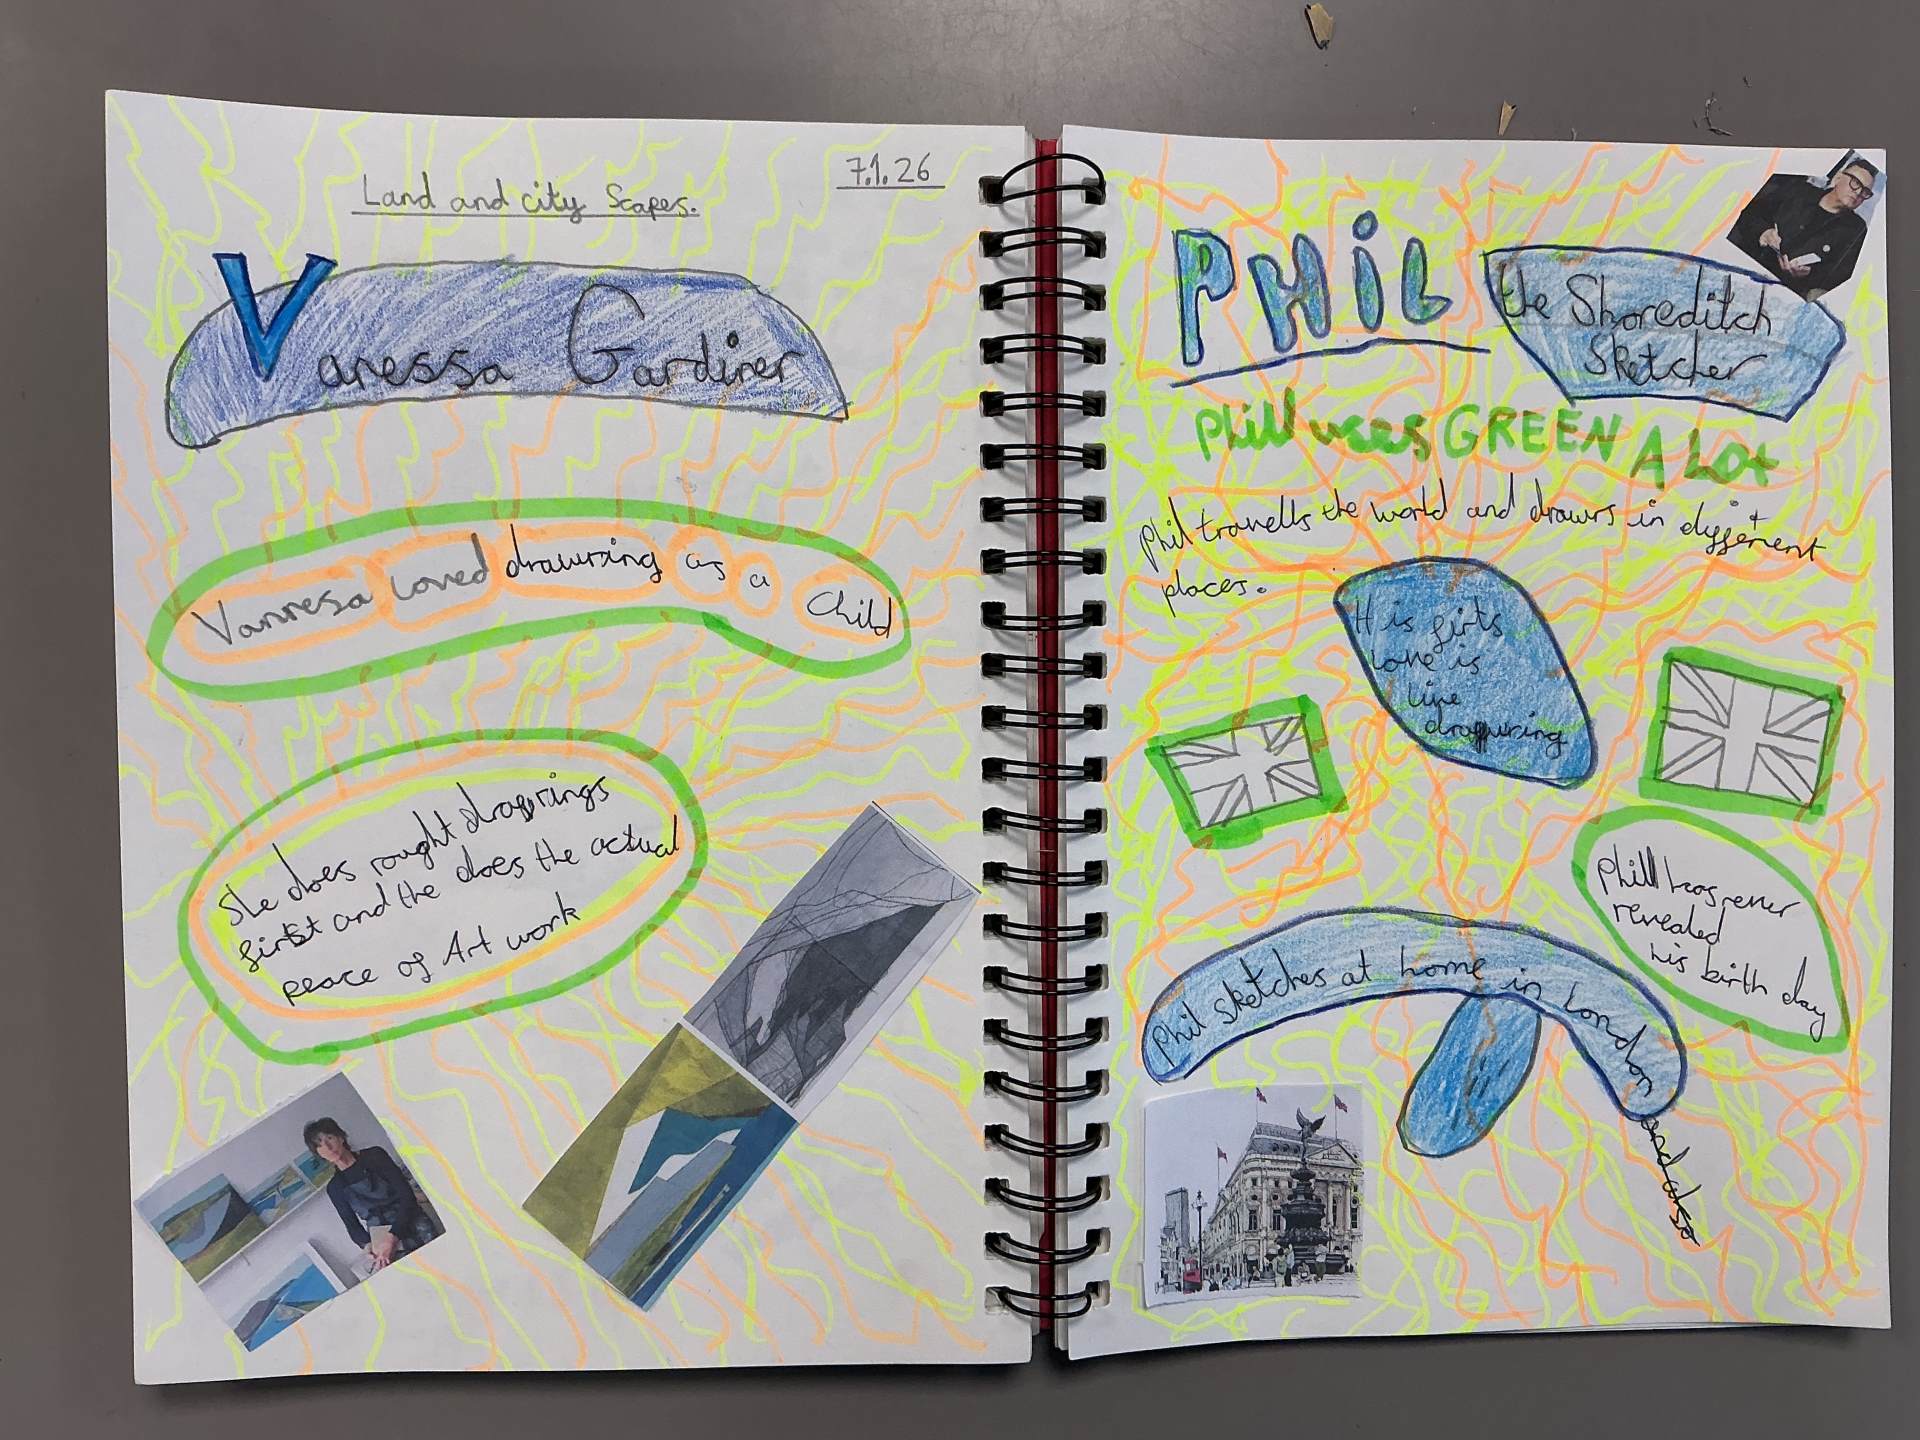 7.1.26
Land and city Scapes.
Vanessa Gardiner
Vannesa loved drawring as a Child
She does rought drawrings
first and the does the actual
peace of Art work
PHIL
the Shoreditch
Sketcher
Phill uses GREEN A Lot
Phil travells the world and drawrs in different
places.
His firts
love is
live
drawring
Phill has never
revealed
his birth day
Phil sketches at home in London
and also